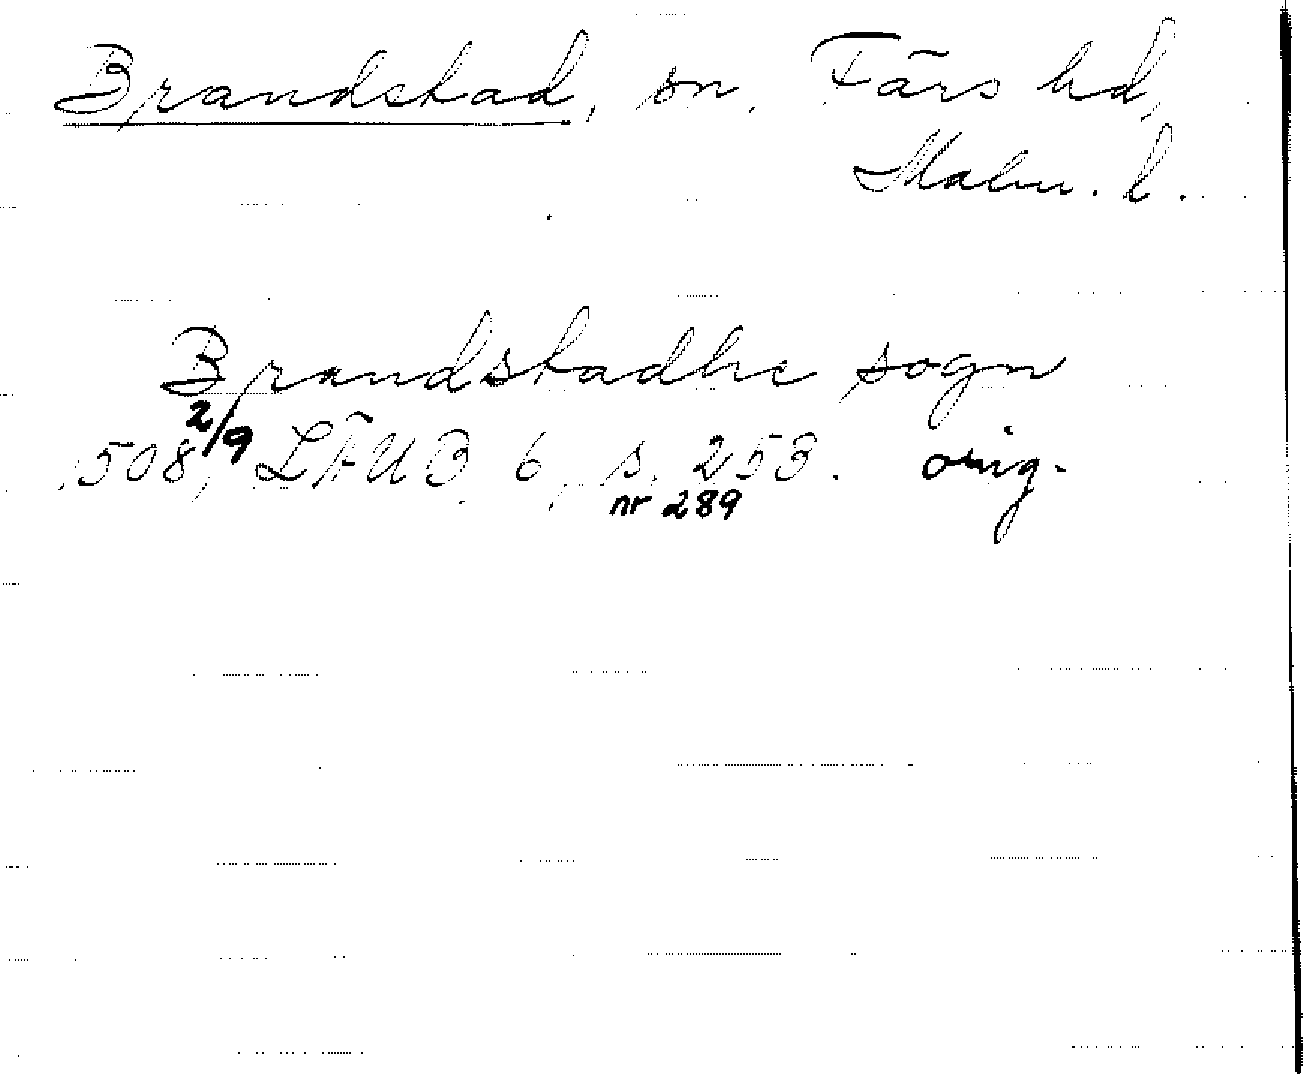 Brandstad, sn, Färs hd,
Malm. l.
Brandstadhe sogn
508 2/9, LÄUB 6, s. 253. orig.
nr 289